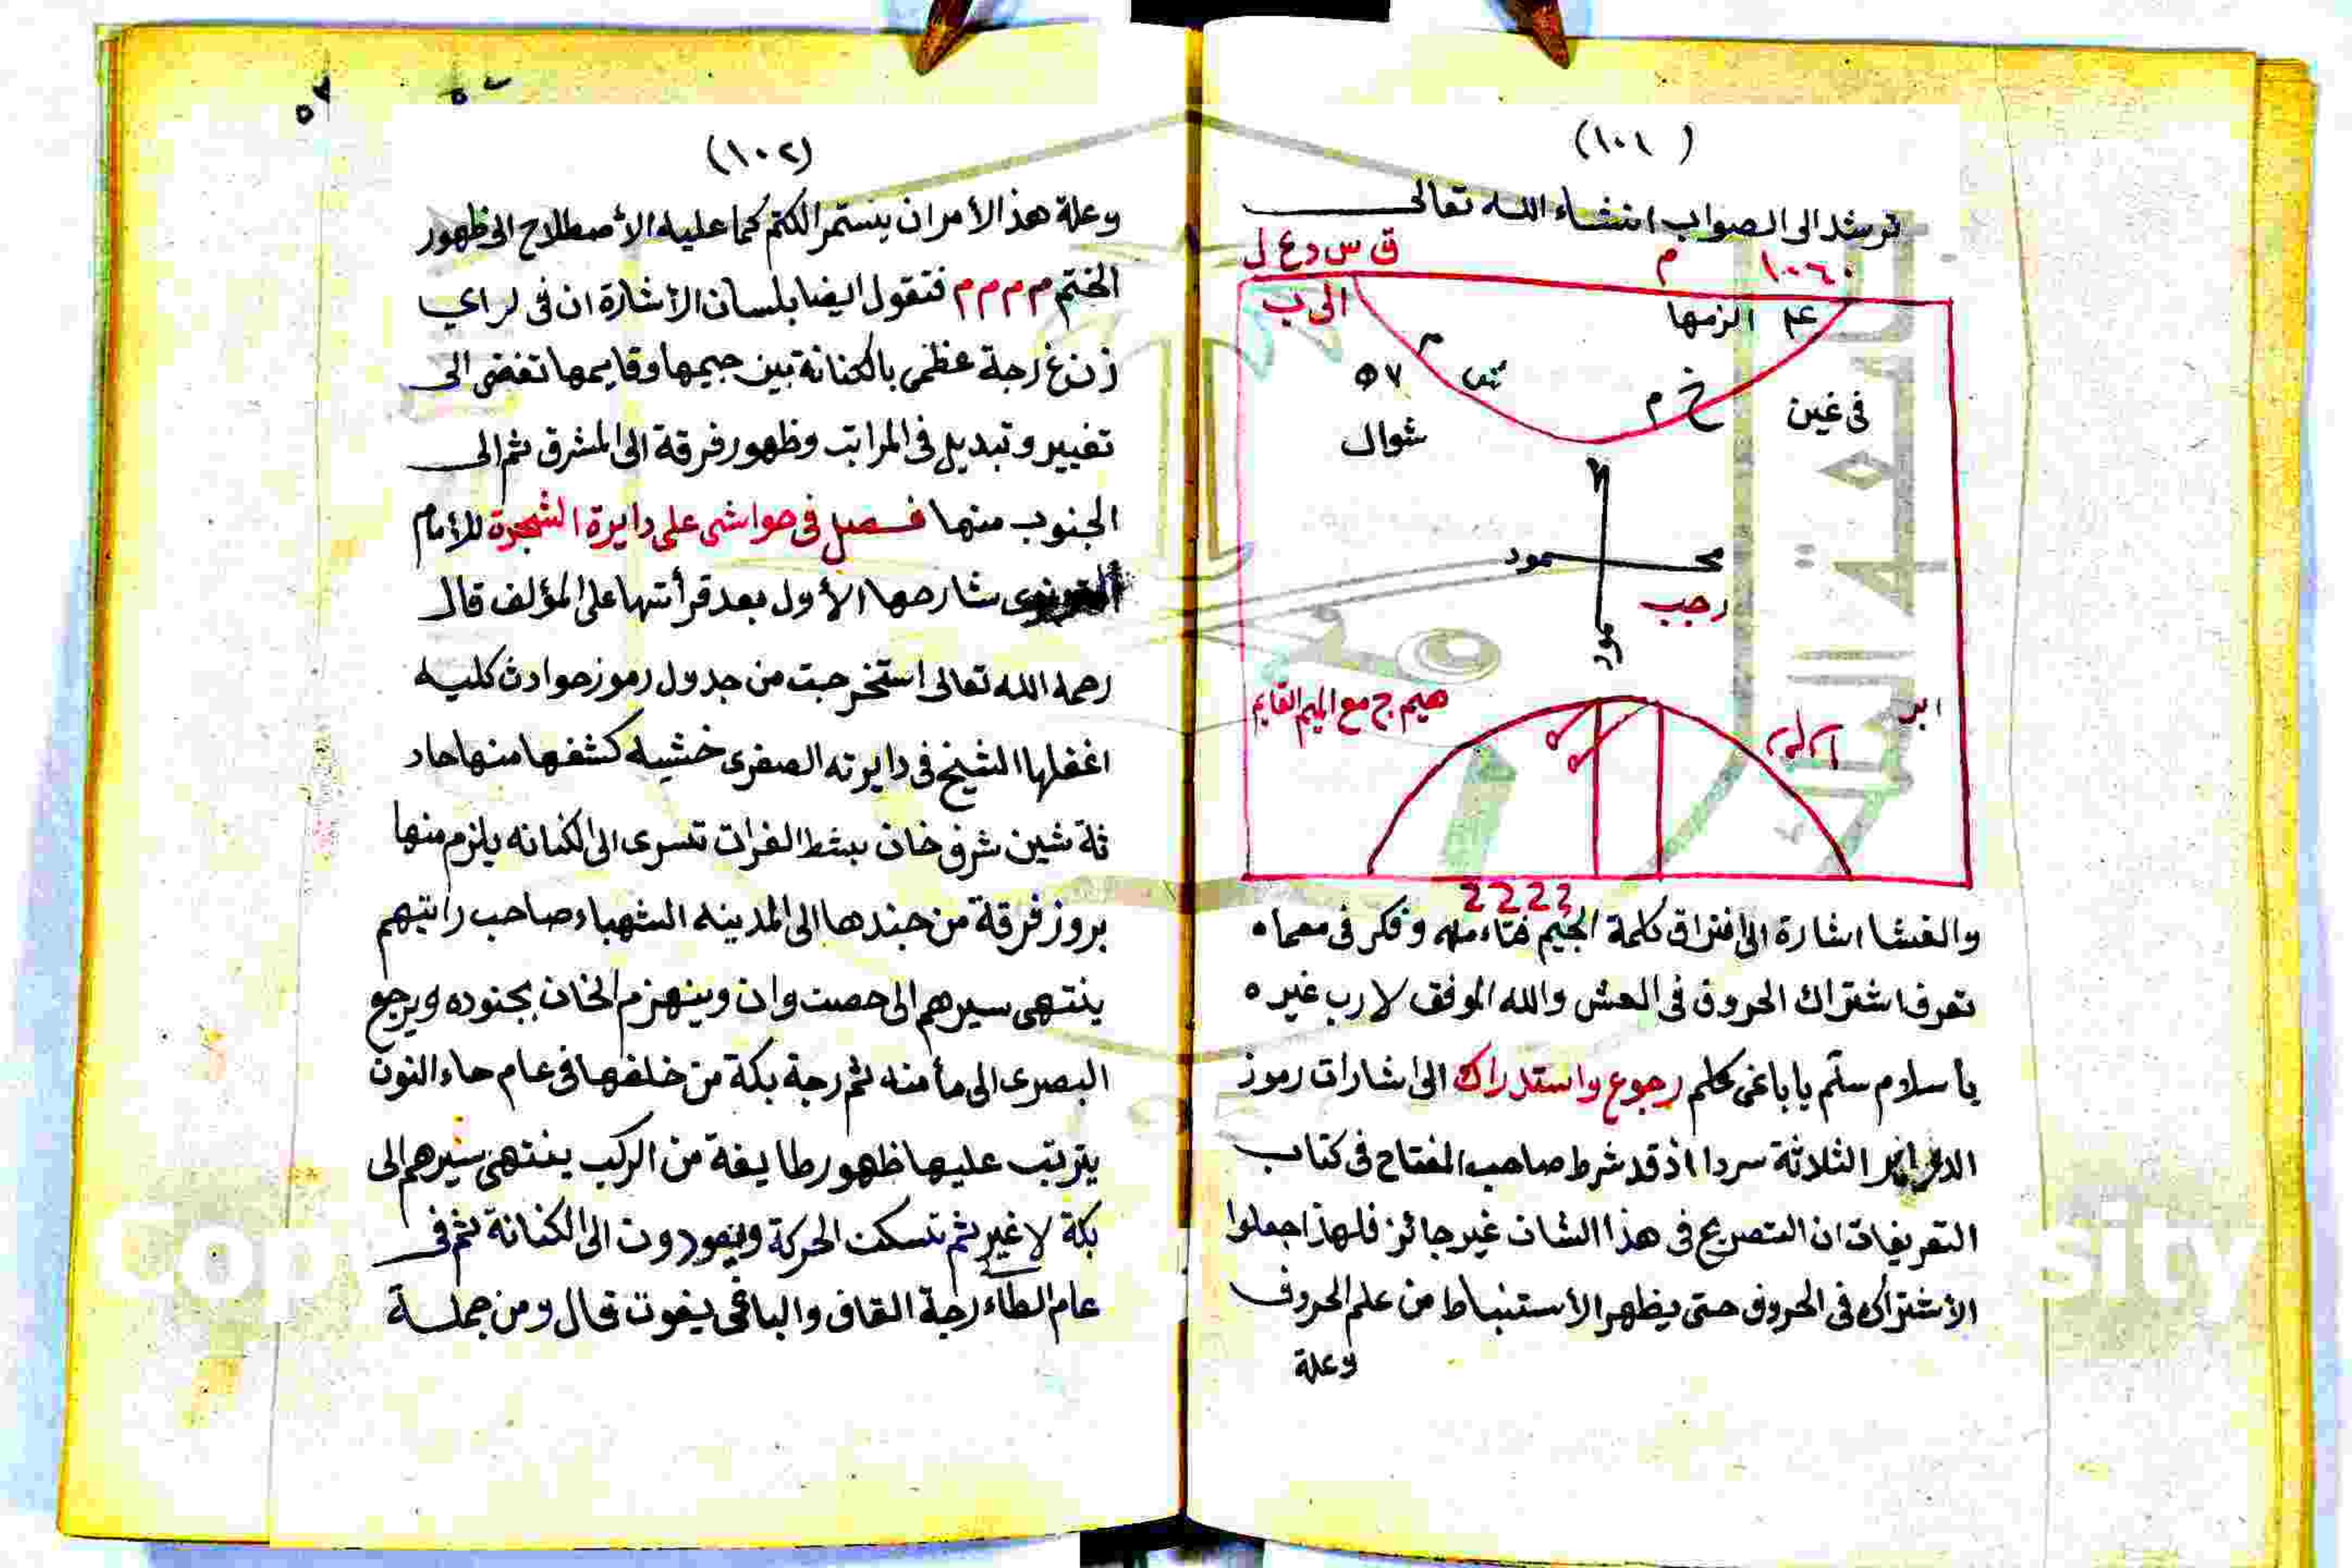 (١٠١)
ترشد الى الصواب انشاء الله تعالى
ق س د ع ل
م
١٠٦٠
الى ب
عم الزمها
م
٥٧
خ م
فى غين
شوال
محـ ـمود
رجب
هيم ج مع الميم القايم
ابر
والغشا اشارة الى افتراق كلمة الجيم وفكر فى معماه
تعرف اشتراك الحروف فى العش والله الموفق لا رب غيره
يا سلام سلّم يا باغى كلم رجوع واستدراك الى اشارات رموز
الثلاثة سردا اذ قد شرط صاحب المفتاح فى كتاب
التعريفات ان التصريح فى هذا الشان غير جائز فلهذا جعلوا
الأشتراك فى الحروف حتى يظهر الأستنباط من علم الحروف
وعلة
(١٠٢)
وعلة هذ الأمر ان يستمر الكتم كما عليه الأصطلاح الى ظهور
الختم م م م م فتقول ايضا بلسان الأشارة ان فى لراي
زن غ رجة عظمى بالكنانة بين جيمها وقايمها تفضى الى
تغيير وتبديل فى المراتب وظهور فرقة الى المشرق ثم الى
الجنوب منها فصل فى حواشى على دايرة الشجرة للأمام
شارحها الأول بعد قرأتها على المؤلف قال
رحمه الله تعالى استخرجت من جدول رموز حوادث كليه
اغفلها الشيخ فى دايرته الصغرى خشيه كشفها منها حاد
ثة شين شرق خان بشط الفرات تسرى الى الكنانه يلزم منها
بروز فرقة من جندها الى المدينه الشهباء صاحب رايتهم
ينتهى سيرهم الى حصت وان وينهزم الخان بجنوده ويرجع
البصرى الى مأمنه ثم رجة بكة من خلفها فى عام حاء النون
يترتب عليها ظهور طايفة من الركب ينتهى سيرهم الى
بكة لا غير ثم تسكت الحركة ويعودون الى الكنانة ثم فى
عام الطاء رجة القاف والباغى يفوت قال ومن جملة